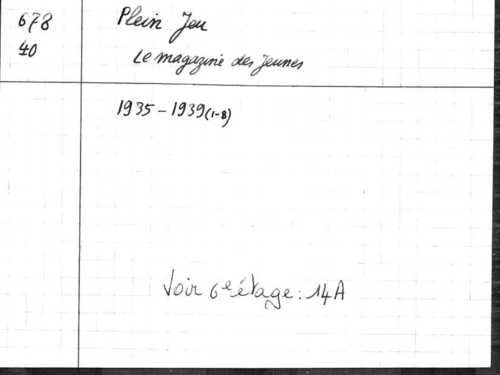 678
40
Plein Jeu
Le magazine des jeunes
1935 - 1939 (1-8)
Voir 6e étage : 14A